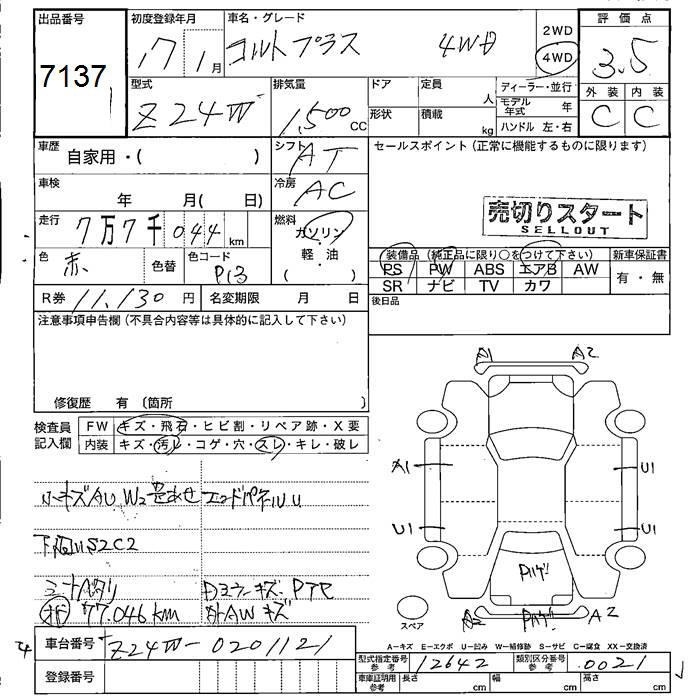 出品番号 初度登録年月 車名・グレード 2WD 4WD 評価点
7137 17年 1月 コルトプラス 4WD 3.5
型式 排気量 ドア 定員 人 ディーラー・並行 外装 内装
Z24W 1,500 CC 形状 積載 kg モデル年式 年 C C
ハンドル 左・右
車歴 自家用・( ) シフト AT セールスポイント (正常に機能するものに限ります)
車検 年 月( 日) 冷房 AC
売切りスタート
SELLOUT
走行 7万7千044 km 燃料 ガソリン・軽・油 ( )
色 赤 色替 色コード P13
装備品 (純正品に限り○をつけて下さい) 新車保証書
PS PW ABS エアB AW 有・無
SR ナビ TV カワ
R券 11,130 円 名変期限 月 日 後日品
注意事項申告欄 (不具合内容等は具体的に記入して下さい)
修復歴 有 (箇所 )
A1 A2
検査員記入欄 FW キズ・飛石・ヒビ割・リペア跡・X要
内装 キズ・汚レ・コゲ・穴・スレ・キレ・破レ
A1 U1
U1 U1
下廻りS2C2
77,046 km 外AWキズ
スペア A2 A2
A-キズ E-エクボ U-凹み W-補修跡 S-サビ C-腐食 XX-交換済
車台番号 Z24W-0201121
型式指定番号 参考 12642 類別区分番号 参考 0021
登録番号
車庫証明用 参考 長さ cm 幅 cm 高さ cm